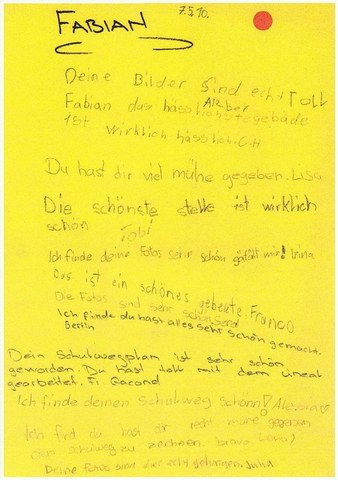 FABIAN
7.5.10.
Deine Bilder sind echt Toll
Fabian das hässlichste gebäude
ist wirklich hässlich. C.H
Du hast dir viel mühe gegeben. Lisa
Die schönste stelle ist wirklich
schön Tobi
Ich finde deine Fotos sehr schön gefält mir! Irina
Das ist ein schönes gebeute. Franco
Die Fotos sind sehr schön.
Ich finnde du hast alles sehr schön gemacht.
Berlin
Dein Schulwegplan ist sehr schön
geworden. Du hast toll mit dem Lineal
gearbeitet. Fr.
Ich finde deinen Schulweg schönn!
Ich find du hast dir recht mühe gegeben
den zu zeichnen. bravo
Deine Fotos sind dir echt gelungen. Julia